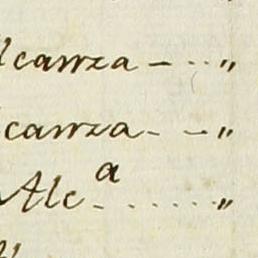 lcanza - . . "
canza - - "
Alc.ª . . . . . . "